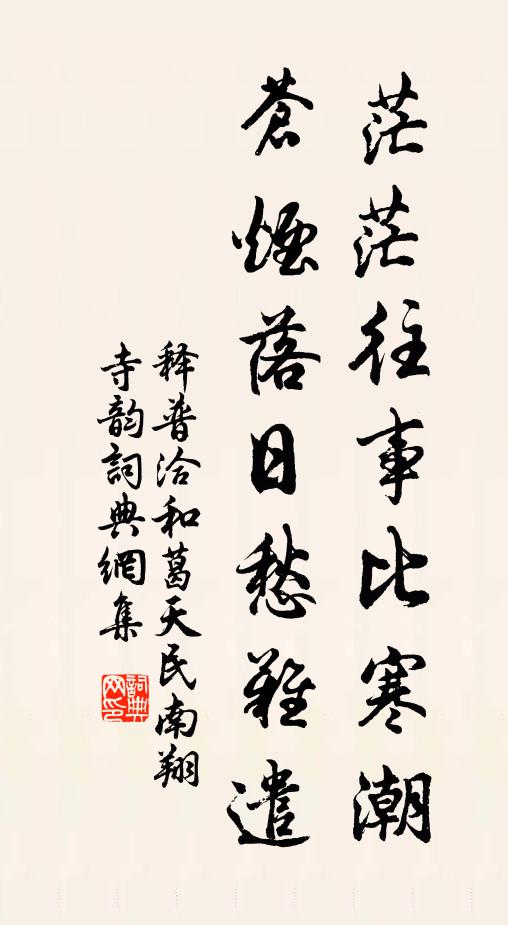 茫茫往事比寒潮
蒼煙落日愁難遣
释普洽和葛天民南翔
寺韵詞典網集
詞典网印